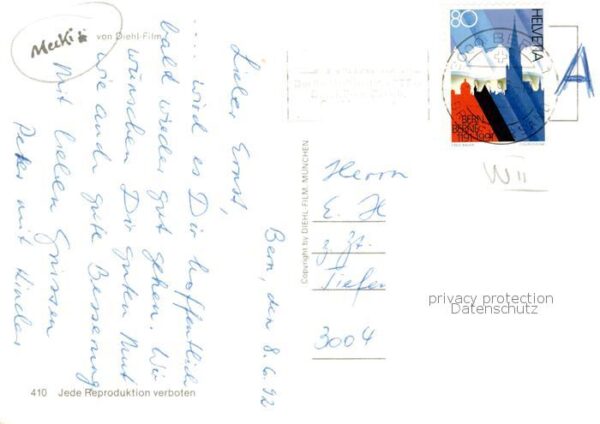 Mecki
von Diehl-Film
Bern, den 8.6.92
Lieber Ernst,
.... wird es Dir hoffentlich
bald wieder gut gehen. Wir
wünschen Dir guten Mut
wie auch gute Besserung
Mit lieben Grüssen
Peter mit Kinder
410 Jede Reproduktion verboten
Copyright by DIEHL-FILM, MÜNCHEN
80
HELVETIA
BERN
BERNE
1191-1991
A
W II
Herrn
E. H
z. Zt.
Tiefen
3004
privacy protection
Datenschutz